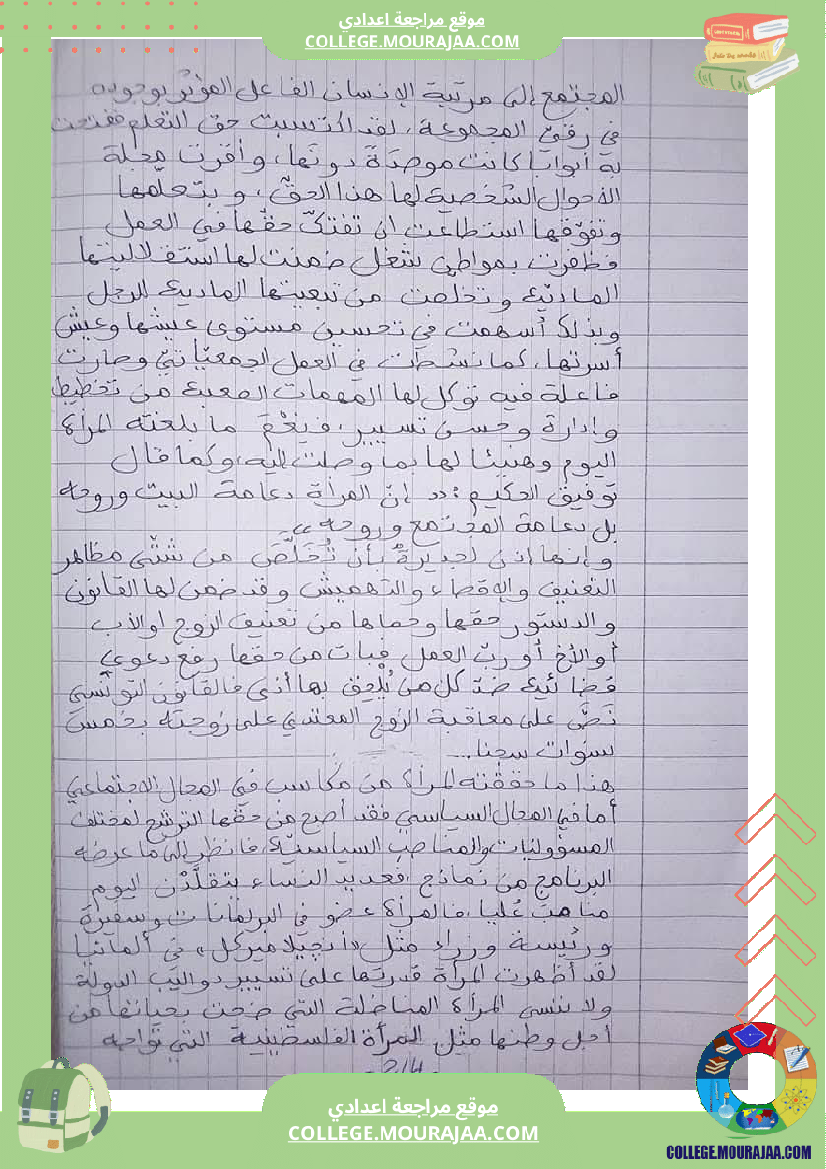 موقع مراجعة اعدادي
COLLEGE.MOURAJAA.COM
المجتمع إلى مرتبة الإنسان الفاعل المؤثر بوجوده
في رقيّ المجموعة، لقد اكتسبت حق التعلم ففتحت
به أبوابا كانت موصدة دونها، وأقرت مجلة
الأحوال الشخصية لها هذا الحقّ، وبتعلمها
وتفوّقها استطاعت ان تفتكّ حقّها في العمل
فظفرت بمواطن شغل ضمنت لها استقلاليتها
الماديّة وتخلصت من تبعيتها المادية للرجل
وبذلك أسهمت في تحسين مستوى عيشها وعيش
أسرتها، كما نشطت في العمل الجمعيّاتي وصارت
فاعلة فيه توكل لها المهمات الصعبة من تخطيط
وإدارة وحسن تسيير، فنِعْمَ ما بلغته المرأة
اليوم وهنيئا لها بما وصلت إليه، وكما قال
توفيق الحكيم: « إنّ المرأة دعامة البيت وروحه
بل دعامة المجتمع وروحه »
وإنها إذن لجديرةٌ بأن تُخَلَّصَ من شتّى مظاهر
التعنيف والإقصاء والتهميش وقد ضمن لها القانون
والدستور حقها وحماها من تعنيف الزوج او الأب
أو الأخ أو ربّ العمل فبات من حقها رفع دعوى
قضائية ضدّ كل من يُلْحِق بها أذى فالقانون التونسي
نَصَّ على معاقبة الزوج المعتدي على زوجته بخمس
سنوات سجنا...
هذا ما حققته المرأة من مكاسب في المجال الاجتماعي
أما في المجال السياسي فقد أصبح من حقّها الترشح لمختلف
المسؤوليات والمناصب السياسيّة، فانظر إلى ما عرضه
البرنامج من نماذج، فعديد النساء يتقلّدْن اليوم
مناصب عُليا، فالمرأة عضو في البرلمانات وسفيرة
ورئيسة وزراء مثل «أنجيلا ميركل» في ألمانيا
لقد أظهرت المرأة قدرتها على تسيير دواليب الدولة
ولا ننسى المرأة المناضلة التي ضحت بحياتها من
أجل وطنها مثل المرأة الفلسطينية التي تواجه
- 2/4 -
موقع مراجعة اعدادي
COLLEGE.MOURAJAA.COM
COLLEGE.MOURAJAA.COM